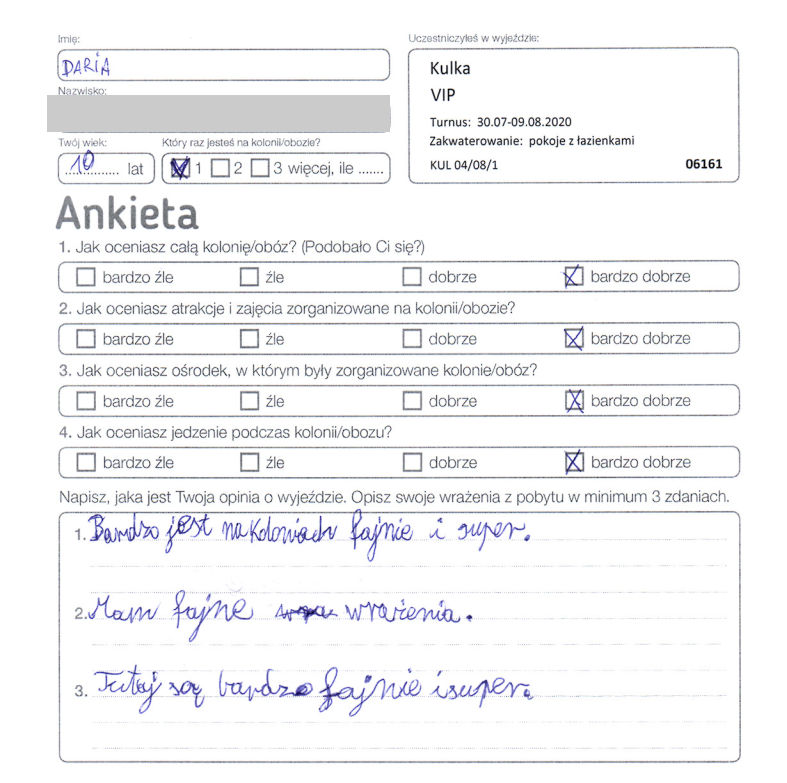 Imię:
DARIA
Nazwisko:
Twój wiek:
10 lat
Który raz jesteś na kolonii/obozie?
1 2 3 więcej, ile .......
Uczestniczyłeś w wyjeździe:
Kulka
VIP
Turnus: 30.07-09.08.2020
Zakwaterowanie: pokoje z łazienkami
KUL 04/08/1 06161
Ankieta
1. Jak oceniasz całą kolonię/obóz? (Podobało Ci się?)
bardzo źle źle dobrze bardzo dobrze
2. Jak oceniasz atrakcje i zajęcia zorganizowane na kolonii/obozie?
bardzo źle źle dobrze bardzo dobrze
3. Jak oceniasz ośrodek, w którym były zorganizowane kolonie/obóz?
bardzo źle źle dobrze bardzo dobrze
4. Jak oceniasz jedzenie podczas kolonii/obozu?
bardzo źle źle dobrze bardzo dobrze
Napisz, jaka jest Twoja opinia o wyjeździe. Opisz swoje wrażenia z pobytu w minimum 3 zdaniach.
1. Bardzo jest na koloniach fajnie i super.
2. Mam fajne wrażenia.
3. Tutaj są bardzo fajnie i super.